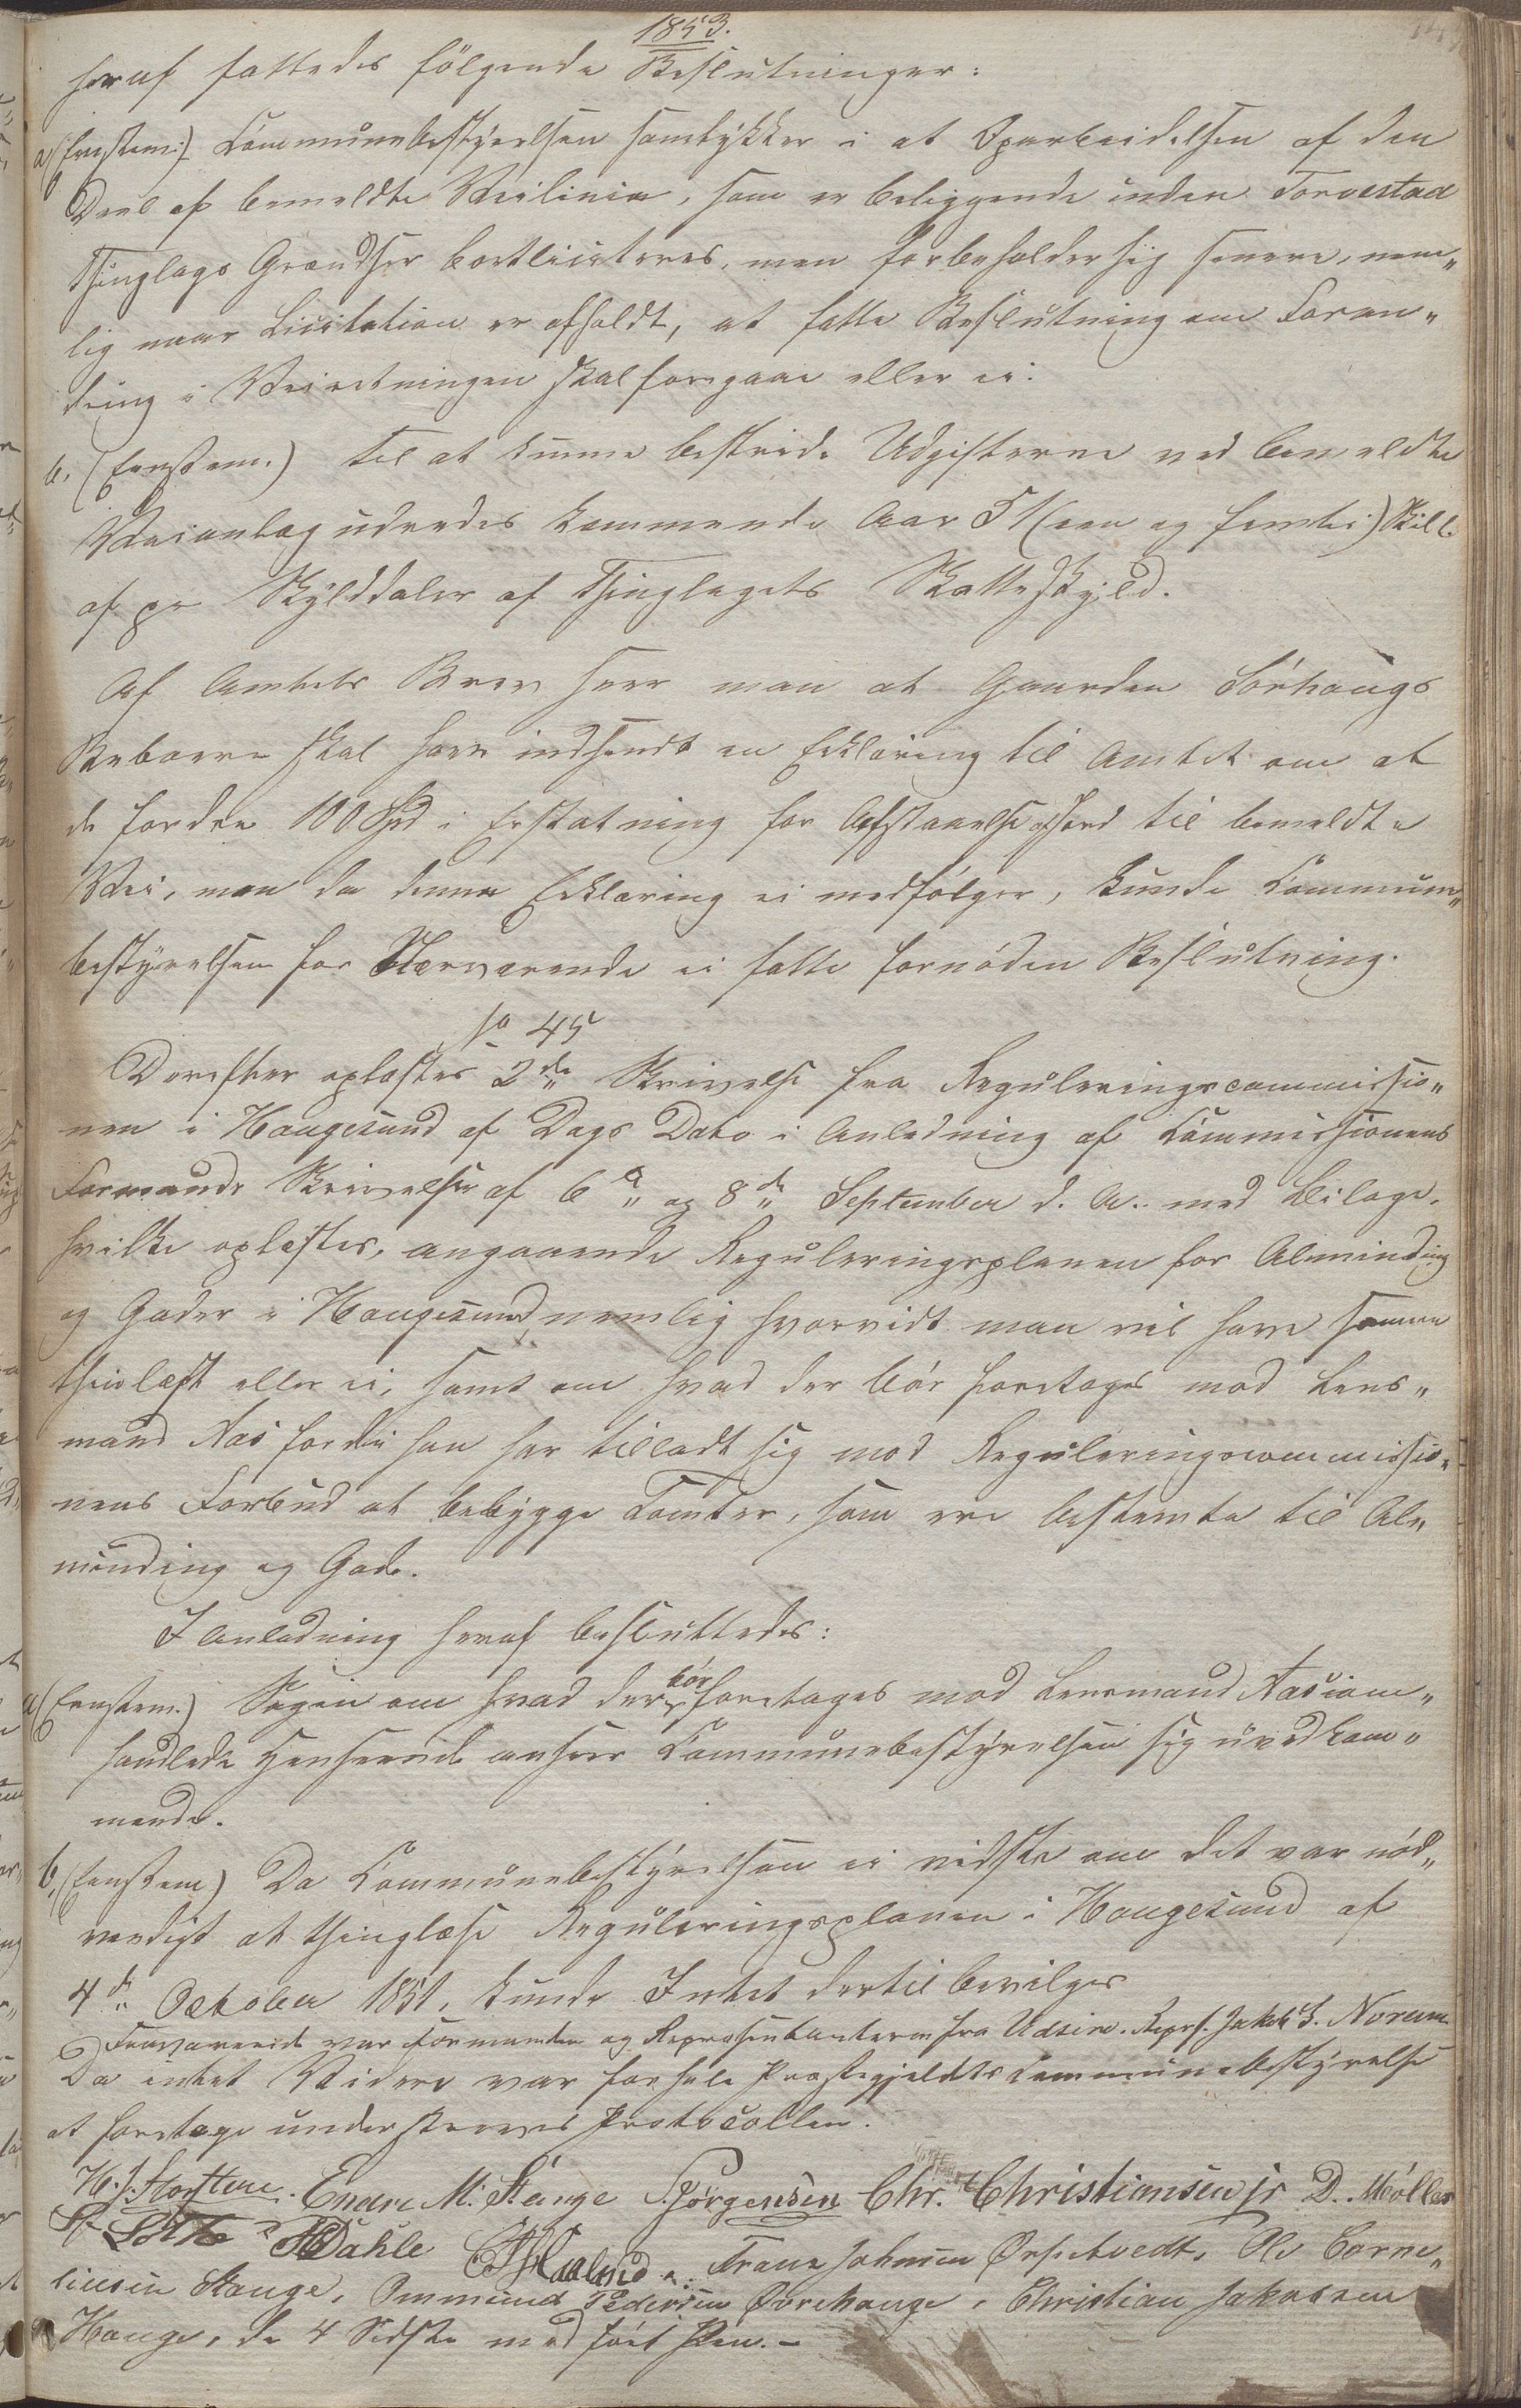 1853.
heraf fattedes fölgende Beslutninger:
a, (Enstem:) Communebestyrelsen samtykker i at Oparbeidelsen af den
Deel af bemeldte Veilinie, som er beliggende inden Torvestad
Thinglags Grændser bortliciteres, men forbeholder sig senere, nem„
lig naar Licitation er afholdt, at fatte Beslutning om Foran„
dring i Veiretningen skal foregaae eller ei.
b, (Enstem.) Til at kunne bestride Udgifterne ved bemeldte
Veianlæg udredes kommende Aar 51 (een og femti) Skill.
af pr Skylddaler af Thinglagets Matteskyld.
Af Amtets Brev seer man at Gaarden Sörhaugs
Beboere skal have indsendt en Erklæring til Amtet om at
de fordre 100 Spd i Erstatning for Afstaaelse af Jord til bemeldte
Vei, men da denne Erklæring ei medfölger, kunde Commune„
bestyrelsen for Nærværende ei fatte fornöden Beslutning.
No 45
Derefter oplæstes 2de Skrivelse fra Reguleringscommissio„
nen i Haugesund af Dags Dato i Anledning af Commissionens
Formands Skrivelser af 6te og 8de September d. A. med Bilage,
hvilke oplæstes, angaaende Reguleringsplanen for Alminding
og Gader i Haugesund nemlig hvorvidt man vil have samme
thinlæst eller ei, samt om hvad der bör foretages mod Lens„
mand Aas fordi han har tilladt sig mod Reguleringscommissio„
nens Forbud at bebygge Tomter, som ere bestemte til Al„
minding og Gade.
I Anledning heraf besluttedes:
a (Enstem.) Sagen om hvad der bör foretages mod Lensmand Aas i om„
handlede Henseende anseer Communebestyrelsen sig uvedkom„
mende.
b, (Enstem) Da Communebestyrelsen ei vidste om det var nöd„
vendigt at thinglæse Reguleringsplanen i Haugesund af
4de October 1851, kunde Intet dertil bevilges
Fraværende var Formanden og Repræsentanterne fra Udsire. Repræs. Jakob S. Norum
Da intet Videre var for hele Præstegjeldets Communebestyrelse
at foretage underskreves Protocollen.
Endre M. Stange S. Jörgensen Chr. Christiansen jr D. Möller
Dahle Haaland. Frans Johnsen Ørpetvedt, Ole Corne„
liusen Stange, Ommund Pedersen Ovrehauge, Christian Jakobsen
Hauge, de 4 Sidste med fört Pen. –